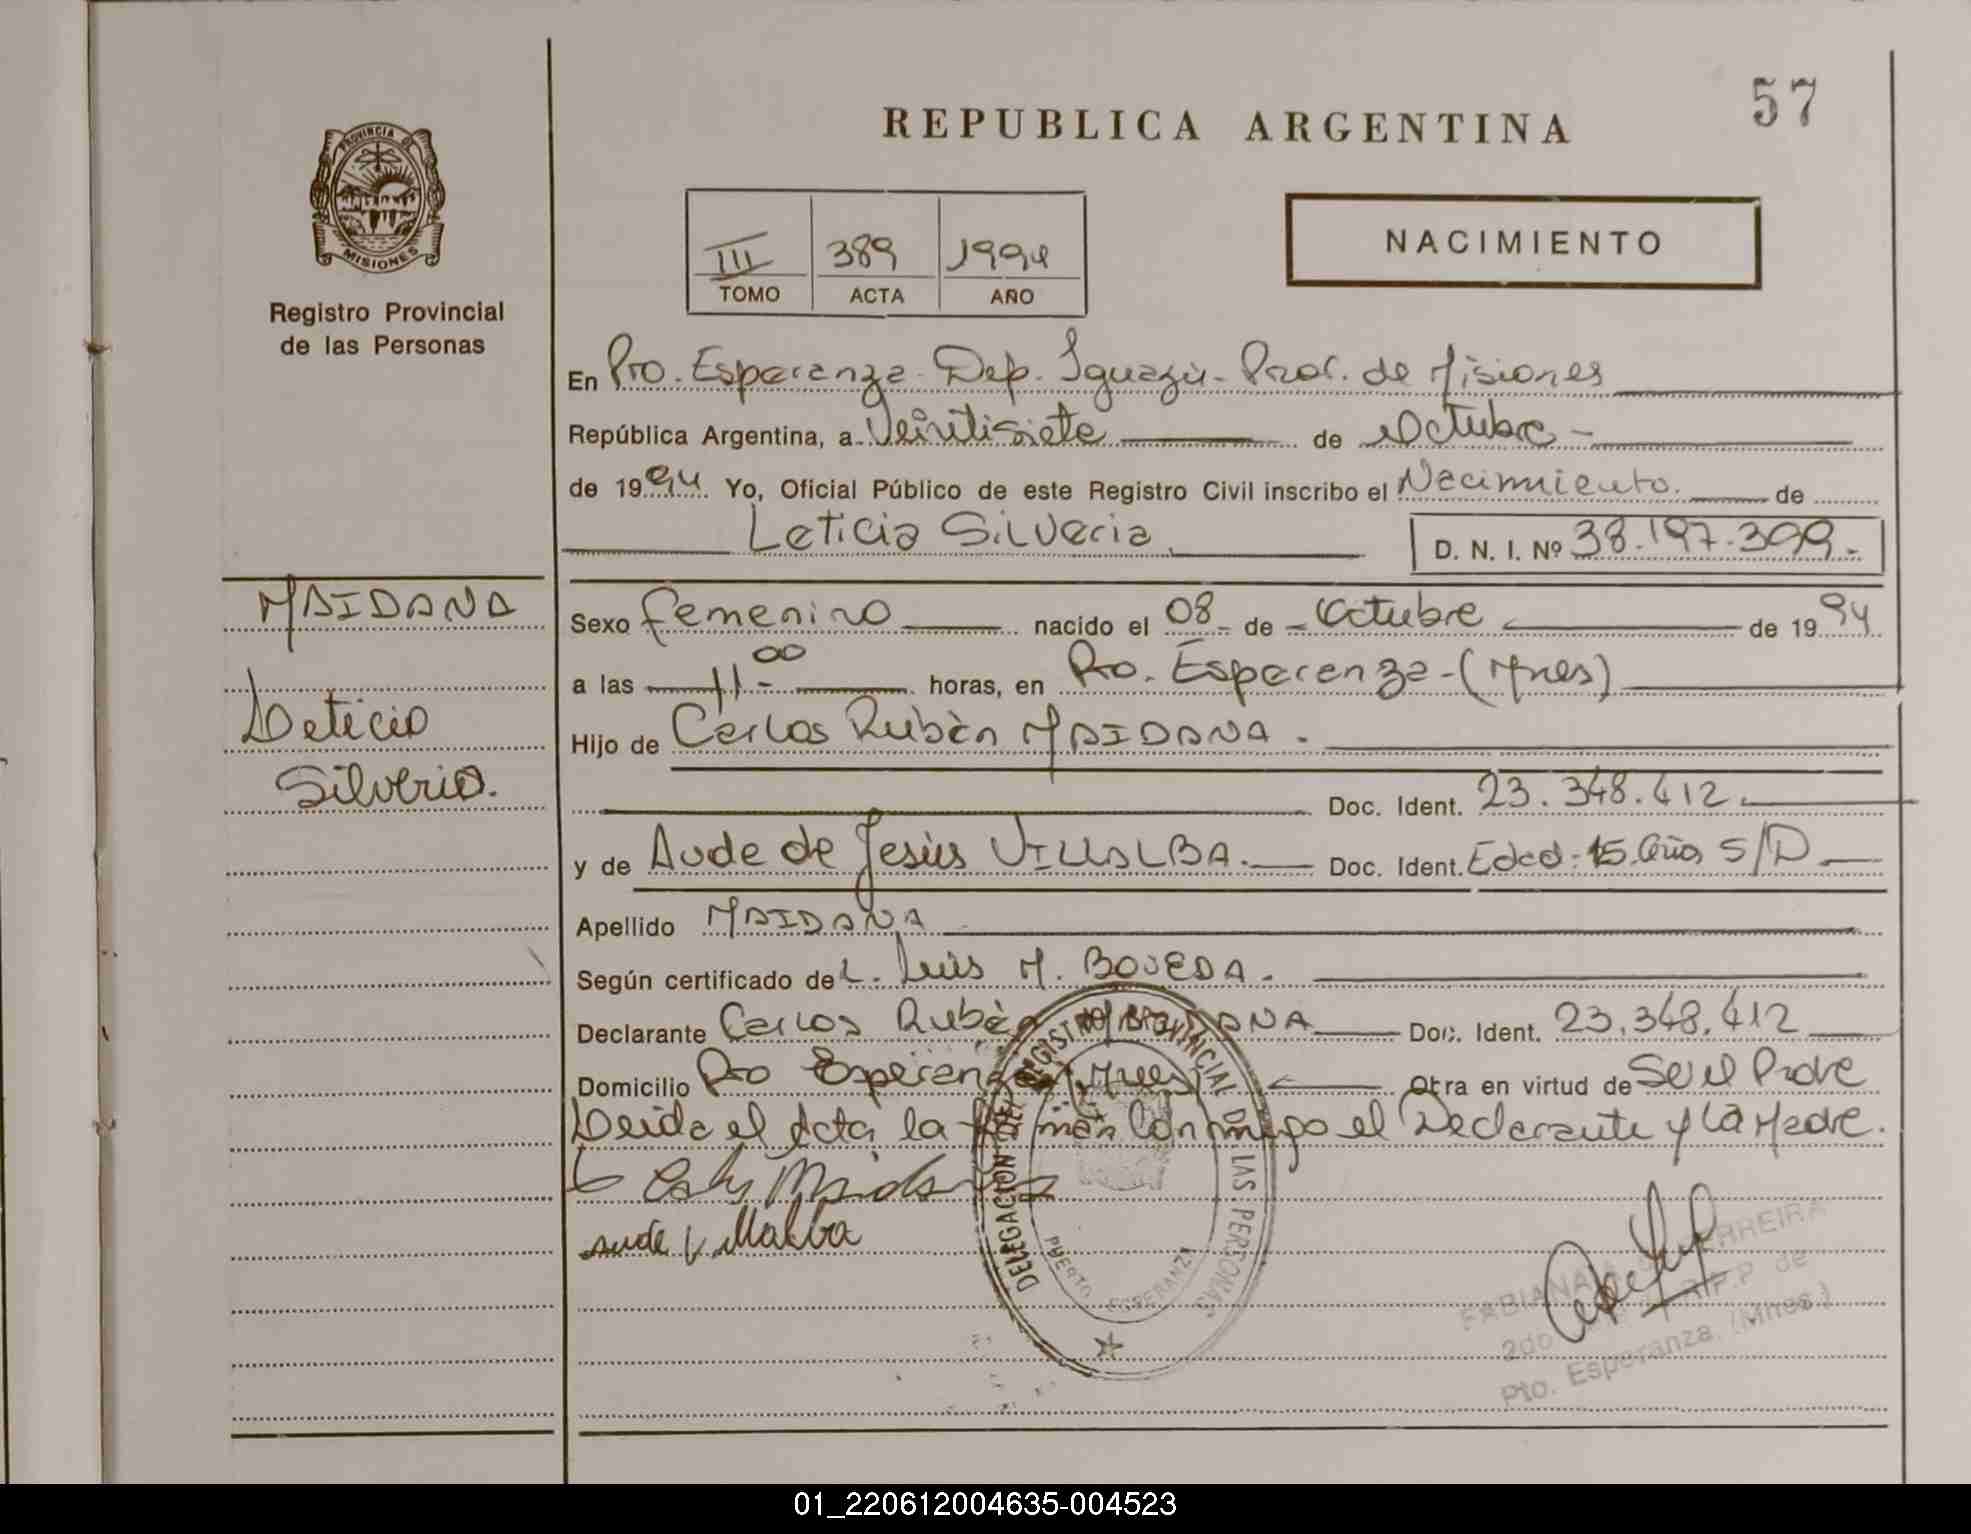 57
REPUBLICA ARGENTINA
PROVINCIA
MISIONES
Registro Provincial
de las Personas
III 389 1994
TOMO ACTA AÑO
NACIMIENTO
En Pto. Esperanza - Dep. Iguazú - Prov. de Misiones
República Argentina, a Veintisiete de Octubre -
de 1994 Yo, Oficial Público de este Registro Civil inscribo el Nacimiento. de
Leticia Silveria D. N. I. Nº 38.197.399.-
MAIDANA
Leticia
Silveria.
Sexo femenino nacido el 08 de Octubre de 1994
a las 11-00 horas, en Pto. Esperanza - (Mnes)
Hijo de Carlos Rubén MAIDANA.
Doc. Ident. 23.348.412.
y de Aude de Jesús VILLALBA. Doc. Ident. Edad: 15 Años S/D
Apellido MAIDANA
Según certificado de L. Luis M. BOVEDA.
Declarante Carlos Rubén MAIDANA Doc. Ident. 23.348.412
Domicilio Pto Esperanza (Mnes) Obra en virtud de Ser el Padre
Leida el Acta la firman conmigo el Declarante y la Madre.
Aude Villalba
DELEGACION DEL REGISTRO PROVINCIAL DE LAS PERSONAS
PUERTO ESPERANZA
FABIANA FERREIRA
2do. R.P.P de
Pto. Esperanza (Mnes.)
01_220612004635-004523